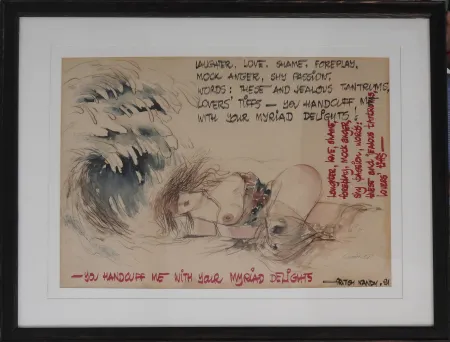 LAUGHTER, LOVE. SHAME. FOREPLAY,
MOCK ANGER, SHY PASSION.
WORDS: THESE AND JEALOUS TANTRUMS,
LOVERS' TIFFS — YOU HANDCUFF ME
WITH YOUR MYRIAD DELIGHTS.
LAUGHTER, LOVE, SHAME,
FOREPLAY, MOCK ANGER,
SHY PASSION, WORDS:
THESE AND JEALOUS TANTRUMS,
LOVERS' TIFFS —
— YOU HANDCUFF ME WITH YOUR MYRIAD DELIGHTS
— PRITISH NANDY, 91